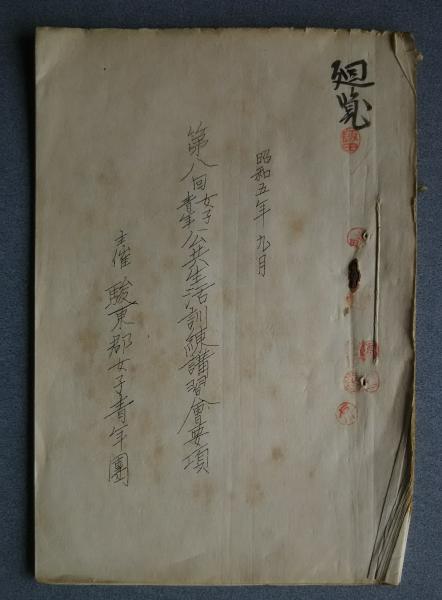 廻覧
昭和五年九月
第八回女子青年公共生活訓練講習會要項
主催 駿東郡女子青年團